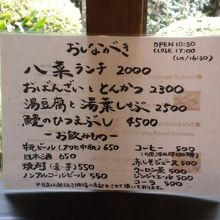 おしながき
OPEN 10:30
CLOSE 17:00
(LO/16:30)
八菜ランチ 2000
おばんざいととんかつ 2300
湯豆腐と湯葉しそご 2500
鰻のひつまぶし 4500
ーお飲みものー
瓶ビール(アサヒ中瓶) 650
日本酒 650
焼酎(麦・芋) 550
ノンアルコールビール 550
コーヒー 500
赤しそジュース 500
ウーロン茶 500
ジンジャエール 500
コーラ 500